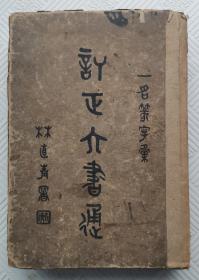 一名篆字彙
訂正六書通
林直清署